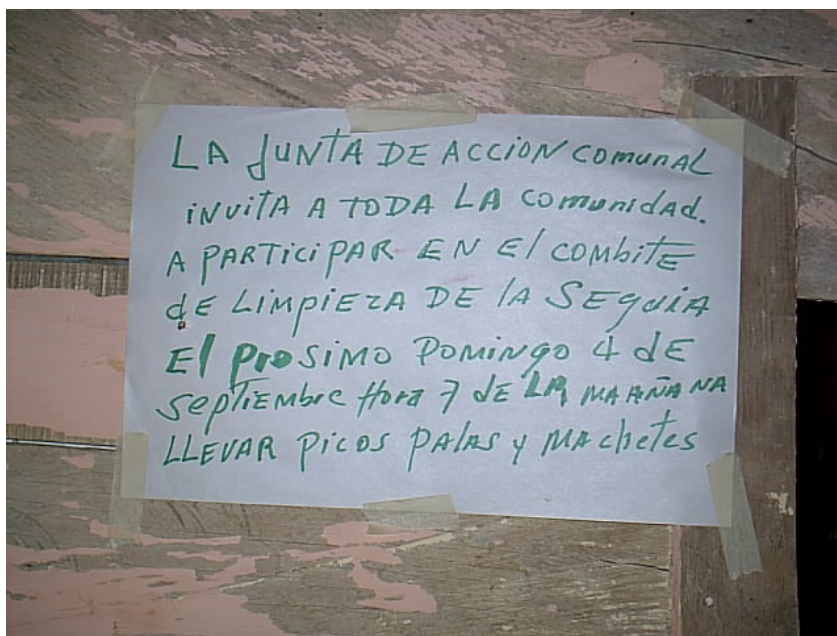 LA JUNTA DE ACCION COMUNAL
INVITA A TODA LA COMUNIDAD.
A PARTICIPAR EN El COMBITE
dE LIMPIEZA DE lA SEQUIA
El PROSIMO DOMINGO 4 dE
SEPTIEMBRE HORA 7 dE LA MAÑANA
LLEVAR PICOS PALAS y MAChETES